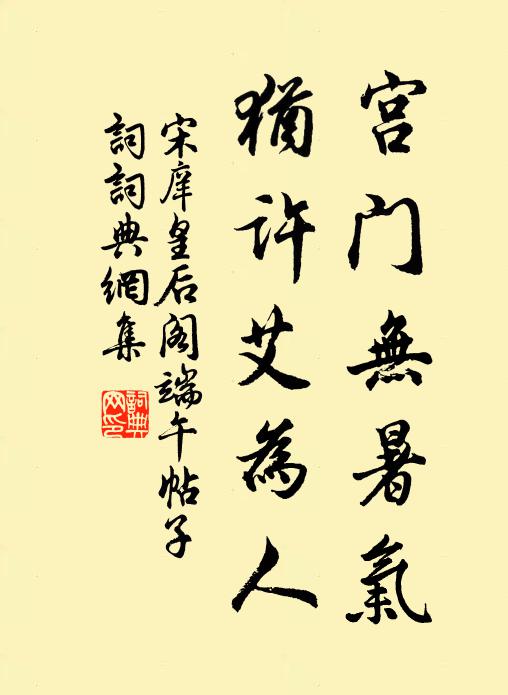 宫门無暑氣
猶許艾為人
宋庠皇后阁端午帖子
詞詞典網集
詞典网印